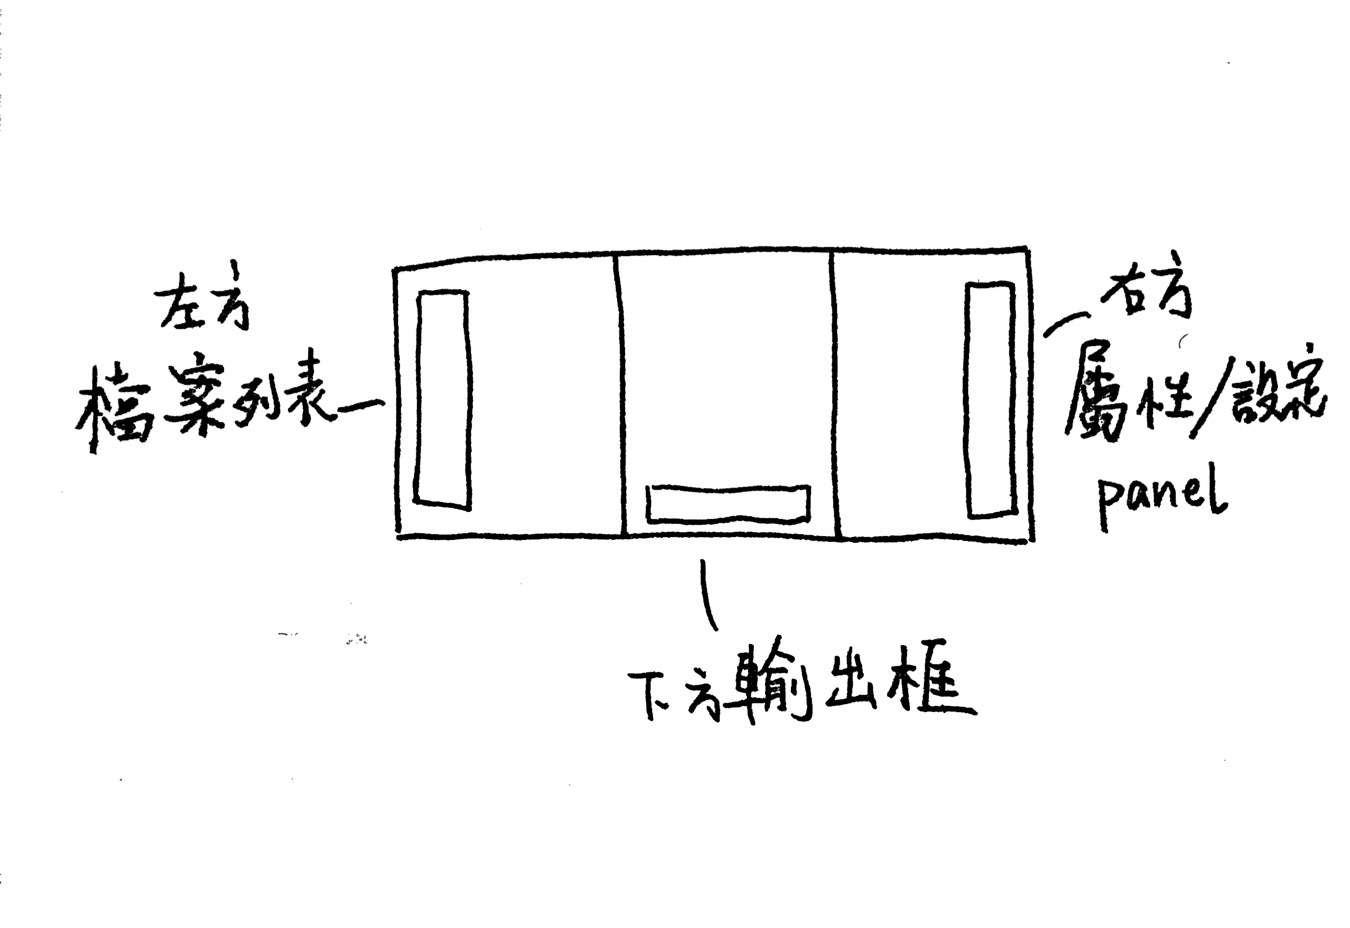 左方
檔案列表
右方
屬性/設定
panel
下方輸出框